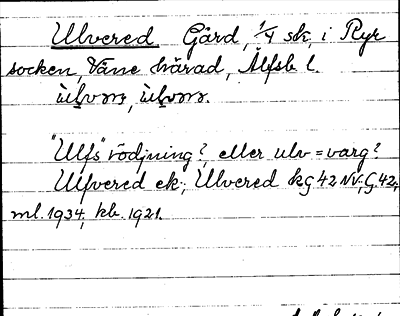 Ulvered. Gård, 1/4 sk, i Ryr
socken, Väne härad, Älfsb. l.
"Ulfs" rödjning?, eller ulv = varg?
Ulfvered ek.; Ulvered kg 42 NV; G. 42,
ml. 1934, kb. 1921.